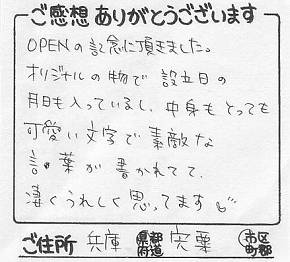 ご感想ありがとうございます
OPENの記念に頂きました。
オリジナルの物で設立日の
月日も入っているし、中身もとっても
可愛い文字で素敵な
言葉が書かれてて、
凄くうれしく思ってます
ご住所 兵庫 都道府県 宍粟 市区町郡